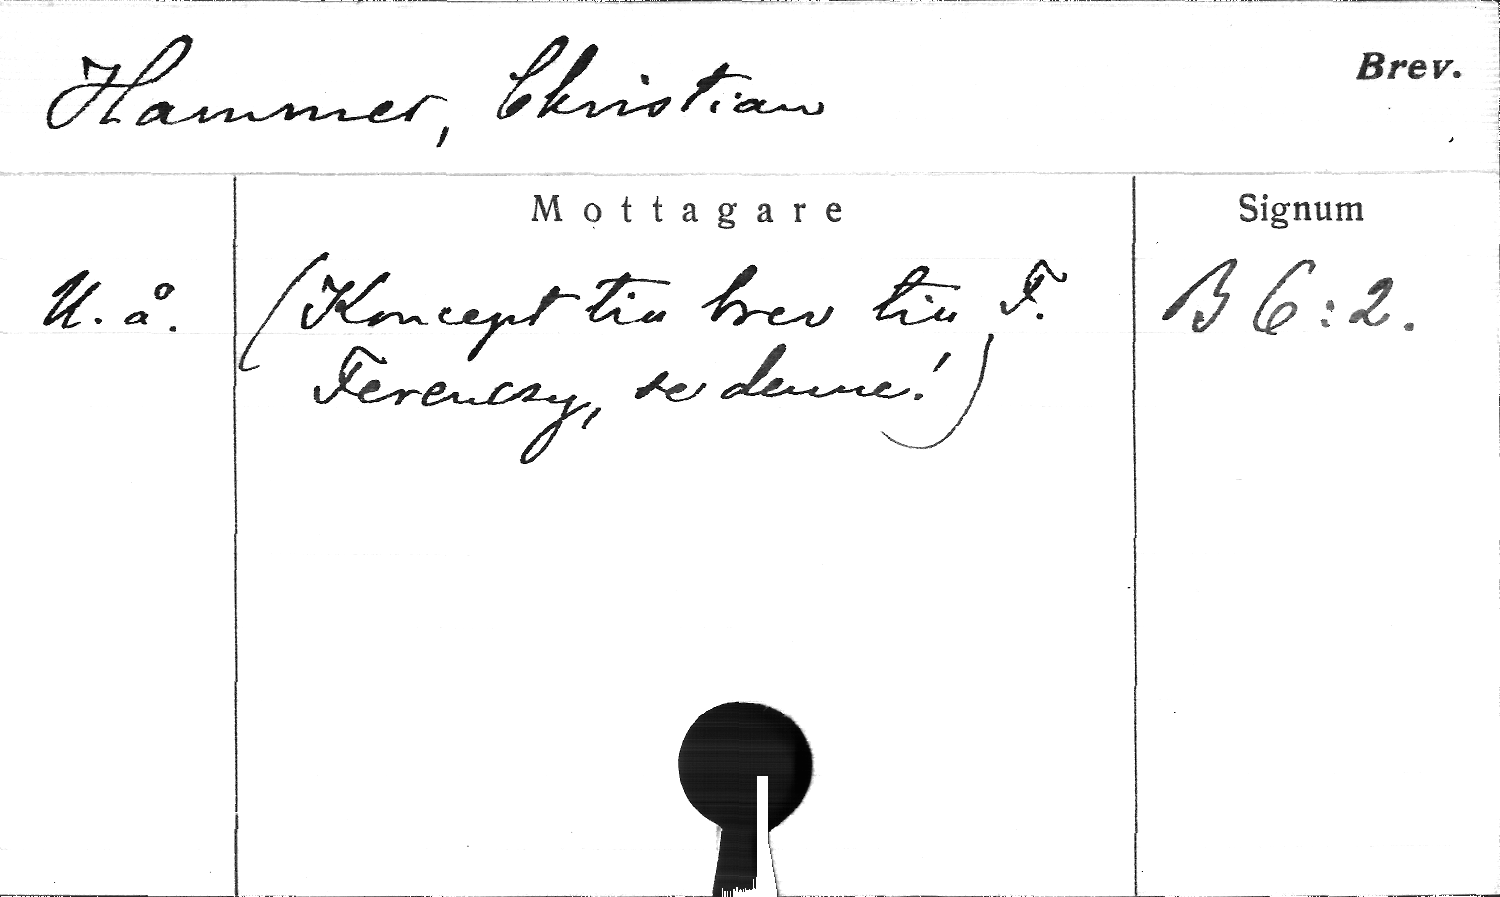 Hammer, Christian
Brev.
Mottagare
Signum
U. å.
(Koncept till brev till F.
Ferenczy, se denne!)
B 6:2.